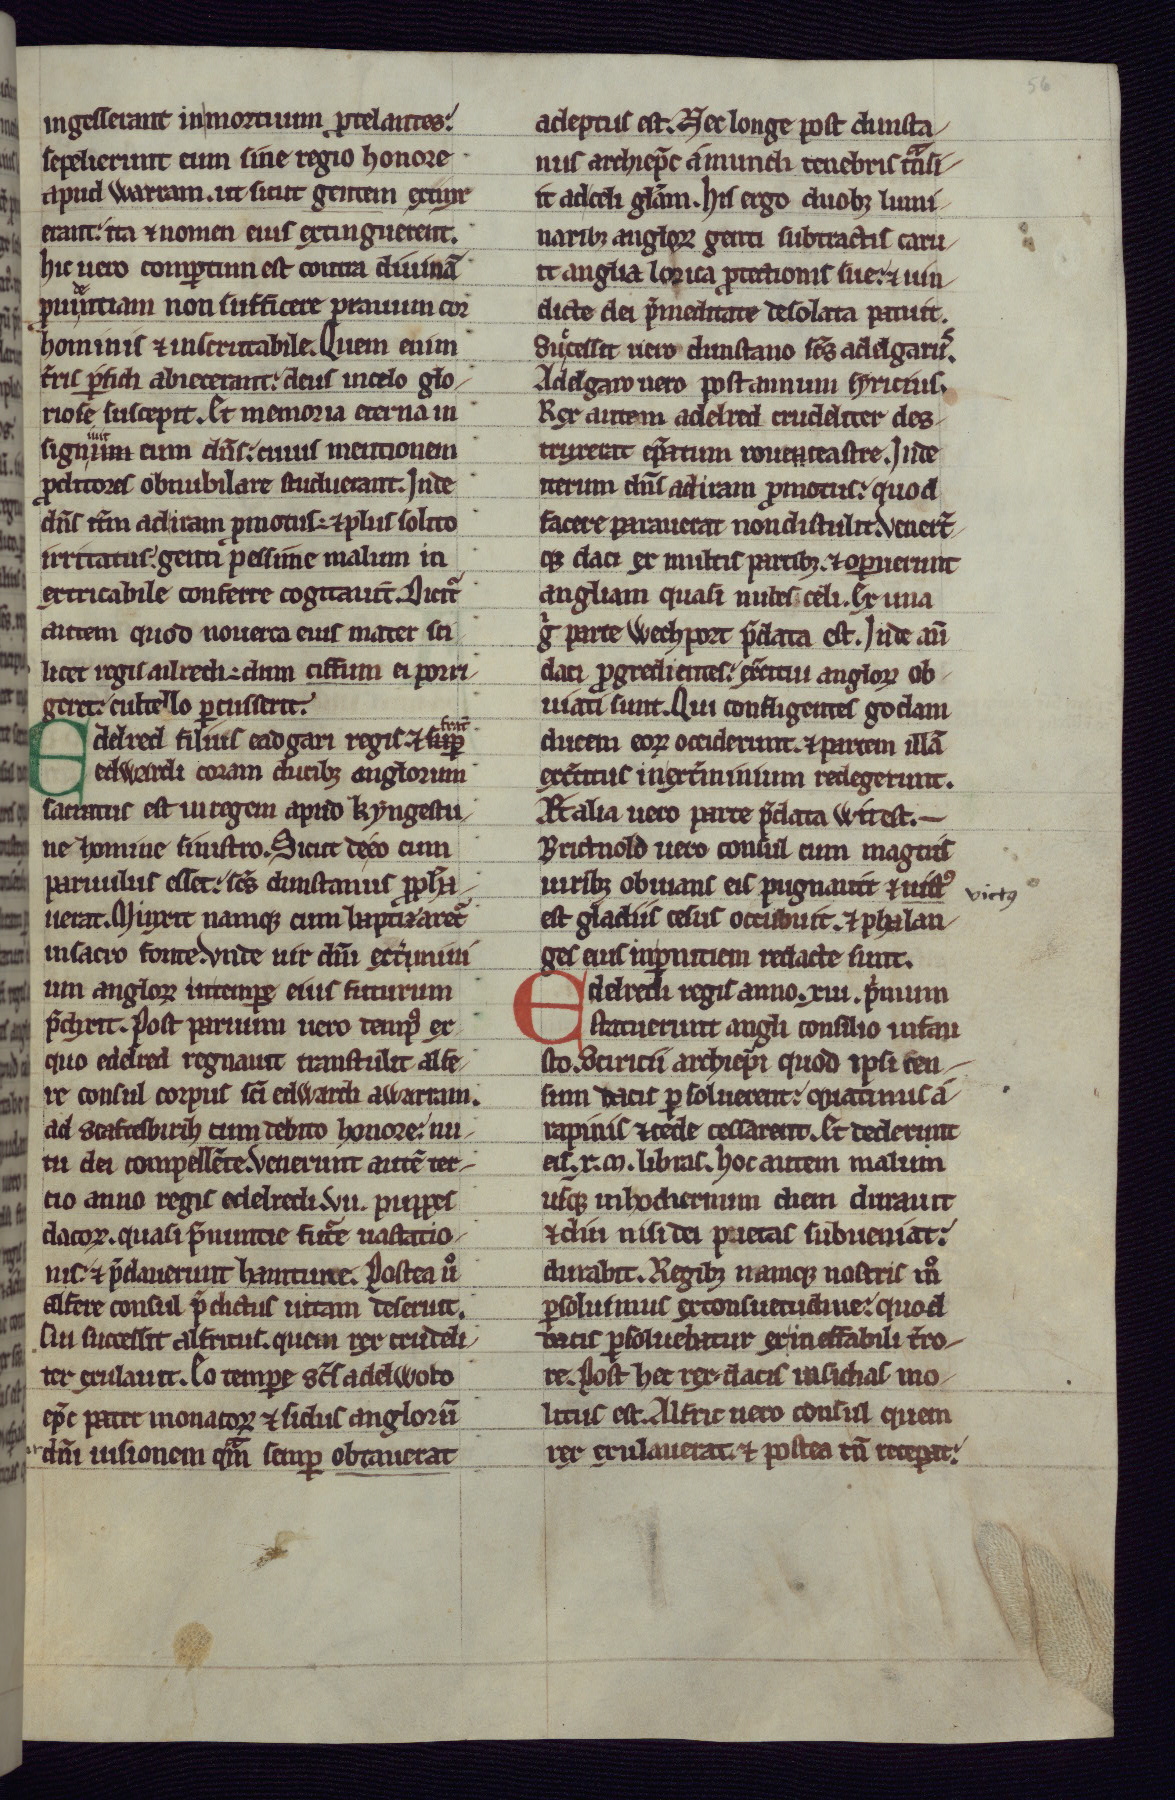 56
ingesserant in mortuum ꝓtelantes.
sepelierunt eum sine regio honore
apud Warram. ut sicut gentem extinx
erant: ita ⁊ nomen eius extinguerent.
hic uero compertum est contra diuinā
prudentiam non sufficere prauum cor
hominis ⁊ inscrutabile. Quem enim
t̄ris ꝑfidi abiecerant: deus in celo glo-
riose suscepit. Et memoria eterna in
signiuit eum dn̄s: cuius mentionem
ꝓditores obnubilare studuerant. Inde
dn̄s it̄m ad iram ꝓmotus: ⁊ plus solito
irritatus: genti pessime malum in
extricabile conferre cogitauit. Dicit̄
autem quod nouerca eius mater sci
licet regis ailredi: dum ciffum ei porri-
geret: cultello ꝑcusserit.
Edelred filius eadgari regis ⁊ frat̄
edwardi coram ducibꝫ anglorum
sacratus est in regem apud kyngestu-
ne homine sinistro. Sicut de eo cum
paruulus esset: sc̄s dunstanus ꝓph̄a-
uerat. Minxit namqꝫ cum baptizaret̄
in sacro fonte. Vnde uir dn̄i ext̄mini
um angloꝝ in tempe eius futurum
p̄dixit. Post paruum uero tempꝰ ex
quo edelred regnauit transtulit alfe-
re consul corpus sc̄i edwardi a warram.
ad scaftesbirih cum debito honore: nu-
tu dei compellēte. Venerunt autē ter-
cio anno regis edelredi. vii. puppes
dacoꝝ. quasi p̄nuntie fut̄e uastatio-
nis: ⁊ p̄dauerunt hamtune. Postea ů
alfere consul p̄dictus uitam deseruit.
Cui successit alfricus. quem rex crudeli-
ter exulauit. Eo tempe sc̄s adelwoto
ep̄c pater monacoꝝ ⁊ sidus anglorū
dn̄i uisionem qm̄ semꝑ obtauerat
adeptus est. Nec longe post dunsta-
nus archiep̄c a mundi tenebris t̄nsi-
it ad celi glām. His ergo duobꝫ lumi-
naribꝫ angloꝝ genti subtractis caru-
it anglia lorica ꝓtectionis sue: ⁊ uin-
dicte dei p̄meditate desolata patuit.
Successit uero dunstano sc̄s adelgarus.
Adelgaro uero post annum syricius.
Rex autem adelred crudeliter des-
truxerat ep̄atum roueceastre. Inde
iterum dn̄s ad iram ꝓmotus: quod
facere parauerat non distulit. Venert̄-
qꝫ daci ex multis partibꝫ. ⁊ opuerunt
angliam quasi nubes celi. Ex una
g̊ parte Wechport p̄data est. Inde aū
daci ꝓgredientes: exc̄itui angloꝝ ob-
uiati sunt. Qui confligentes godam
ducem eoꝝ occiderunt. ⁊ partem illā
exc̄itus in ext̄minium redegerunt.
Ex alia uero parte p̄data Wit est.—
Brictnold uero consul cum magnis
uiribꝫ obuians eis pugnauit ⁊ uictꝰ victꝰ
est gladiis cesus occubuit. ⁊ phalan-
ges eius in ꝑnitiem redacte sunt.
Edelredi regis anno. xiii. p̄mum
statuerunt angli consilio infau
sto. Sciricii archiep̄i quod ipsi cen-
sum dacis ꝑsoluerent: quatinus a-
rapinis ⁊ cede cessarent. Et dederunt
eis. x. m̄. libras. hoc autem malum
usqꝫ in hodiernum diem durauit
⁊ diu nisi dei pietas subueniat:
durabit. Regibꝫ namqꝫ nostris m̊
ꝑsoluimus ex consuetudine: quod
dacis ꝑsoluebatur ex ineffabili t̄ro-
re. Post hec rex dacis insidias mo-
litus est. Alfric uero consul quem
rex exulauerat. ⁊ postea tn̄ receperat: